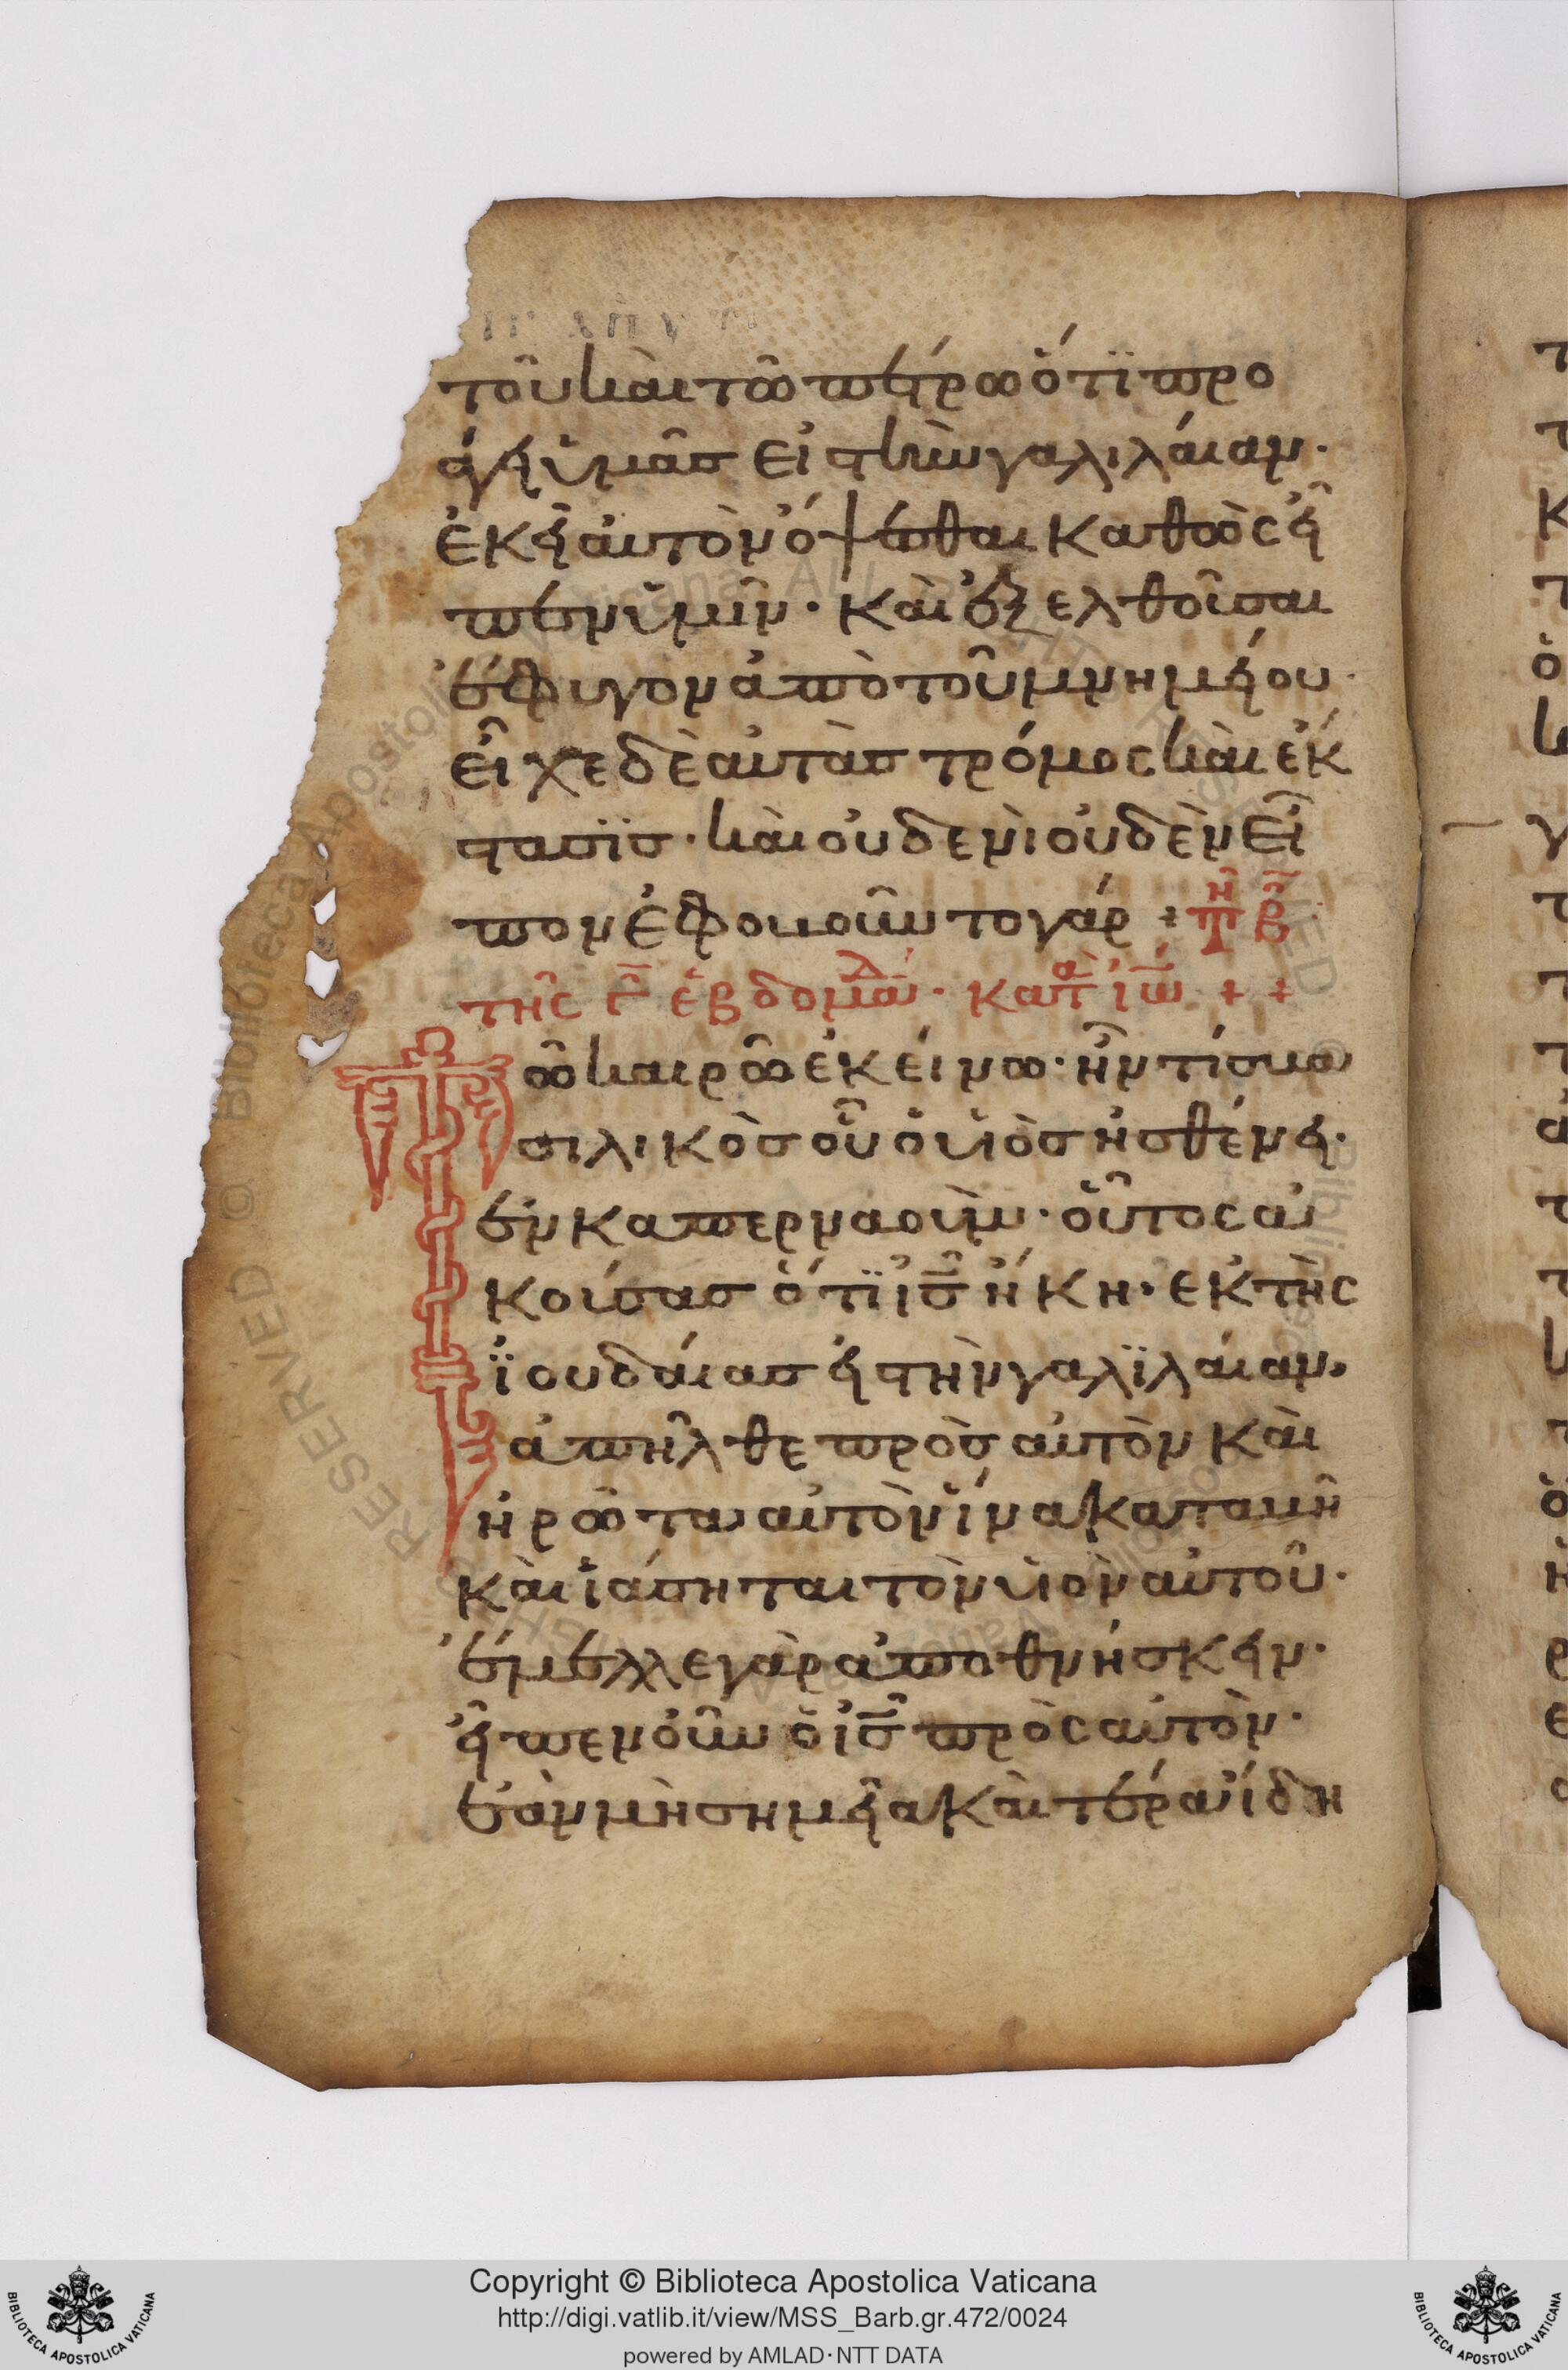 τοῦ καὶ τῶ πέτρω ὅτϊ προ
άγει ὑμᾶσ εἰσ τὴν γαλιλάιαν·
ἐκεῖ ἀυτὸν ὄψεσθαι καθὼς εἶ
πεν ὑμῖν· καὶ ἐξελθοῦσαι
ἔφυγον ἀπὸ τοῦ μνημείου·
εἶχε δὲ αὐτὰσ τρόμος καὶ ἔκ
στασϊσ· καὶ οὐδενὶ οὐδὲν εἶ
πον ἐφοβοῦντο γάρ + τῆ β
τῆς γ ἑβδομάδ· κατὰ ἰω + +
Τῶ καιρῶ ἐκείνω· ἦν τίσ βα
σιλικὸσ οὗ ὁ υἱὸσ ἠσθένει·
ἐν καπερναούμ· οὗτος ἀ
κούσασ ὅτϊ ἰσ ἥκη· ἐκ τῆς
ἰουδάιασ εισ τὴν γαλϊλάιαν,
ἀπῆλθε πρὸσ αὐτὸν καὶ
ἠρῶτα αὐτὸν ἵνα καταβῆ
καὶ ἰάσηται τὸν υἱὸν αὐτοῦ·
ἔμελλε γὰρ ἀποθνήσκειν·
εἶπεν οὖν ὁ ισ πρὸς αὐτὸν·
ἐὰν μὴ σημεῖα καὶ τέρα ἴδη
Copyright © Biblioteca Apostolica Vaticana
http://digi.vatlib.it/view/MSS_Barb.gr.472/0024
powered by AMLAD·NTT DATA